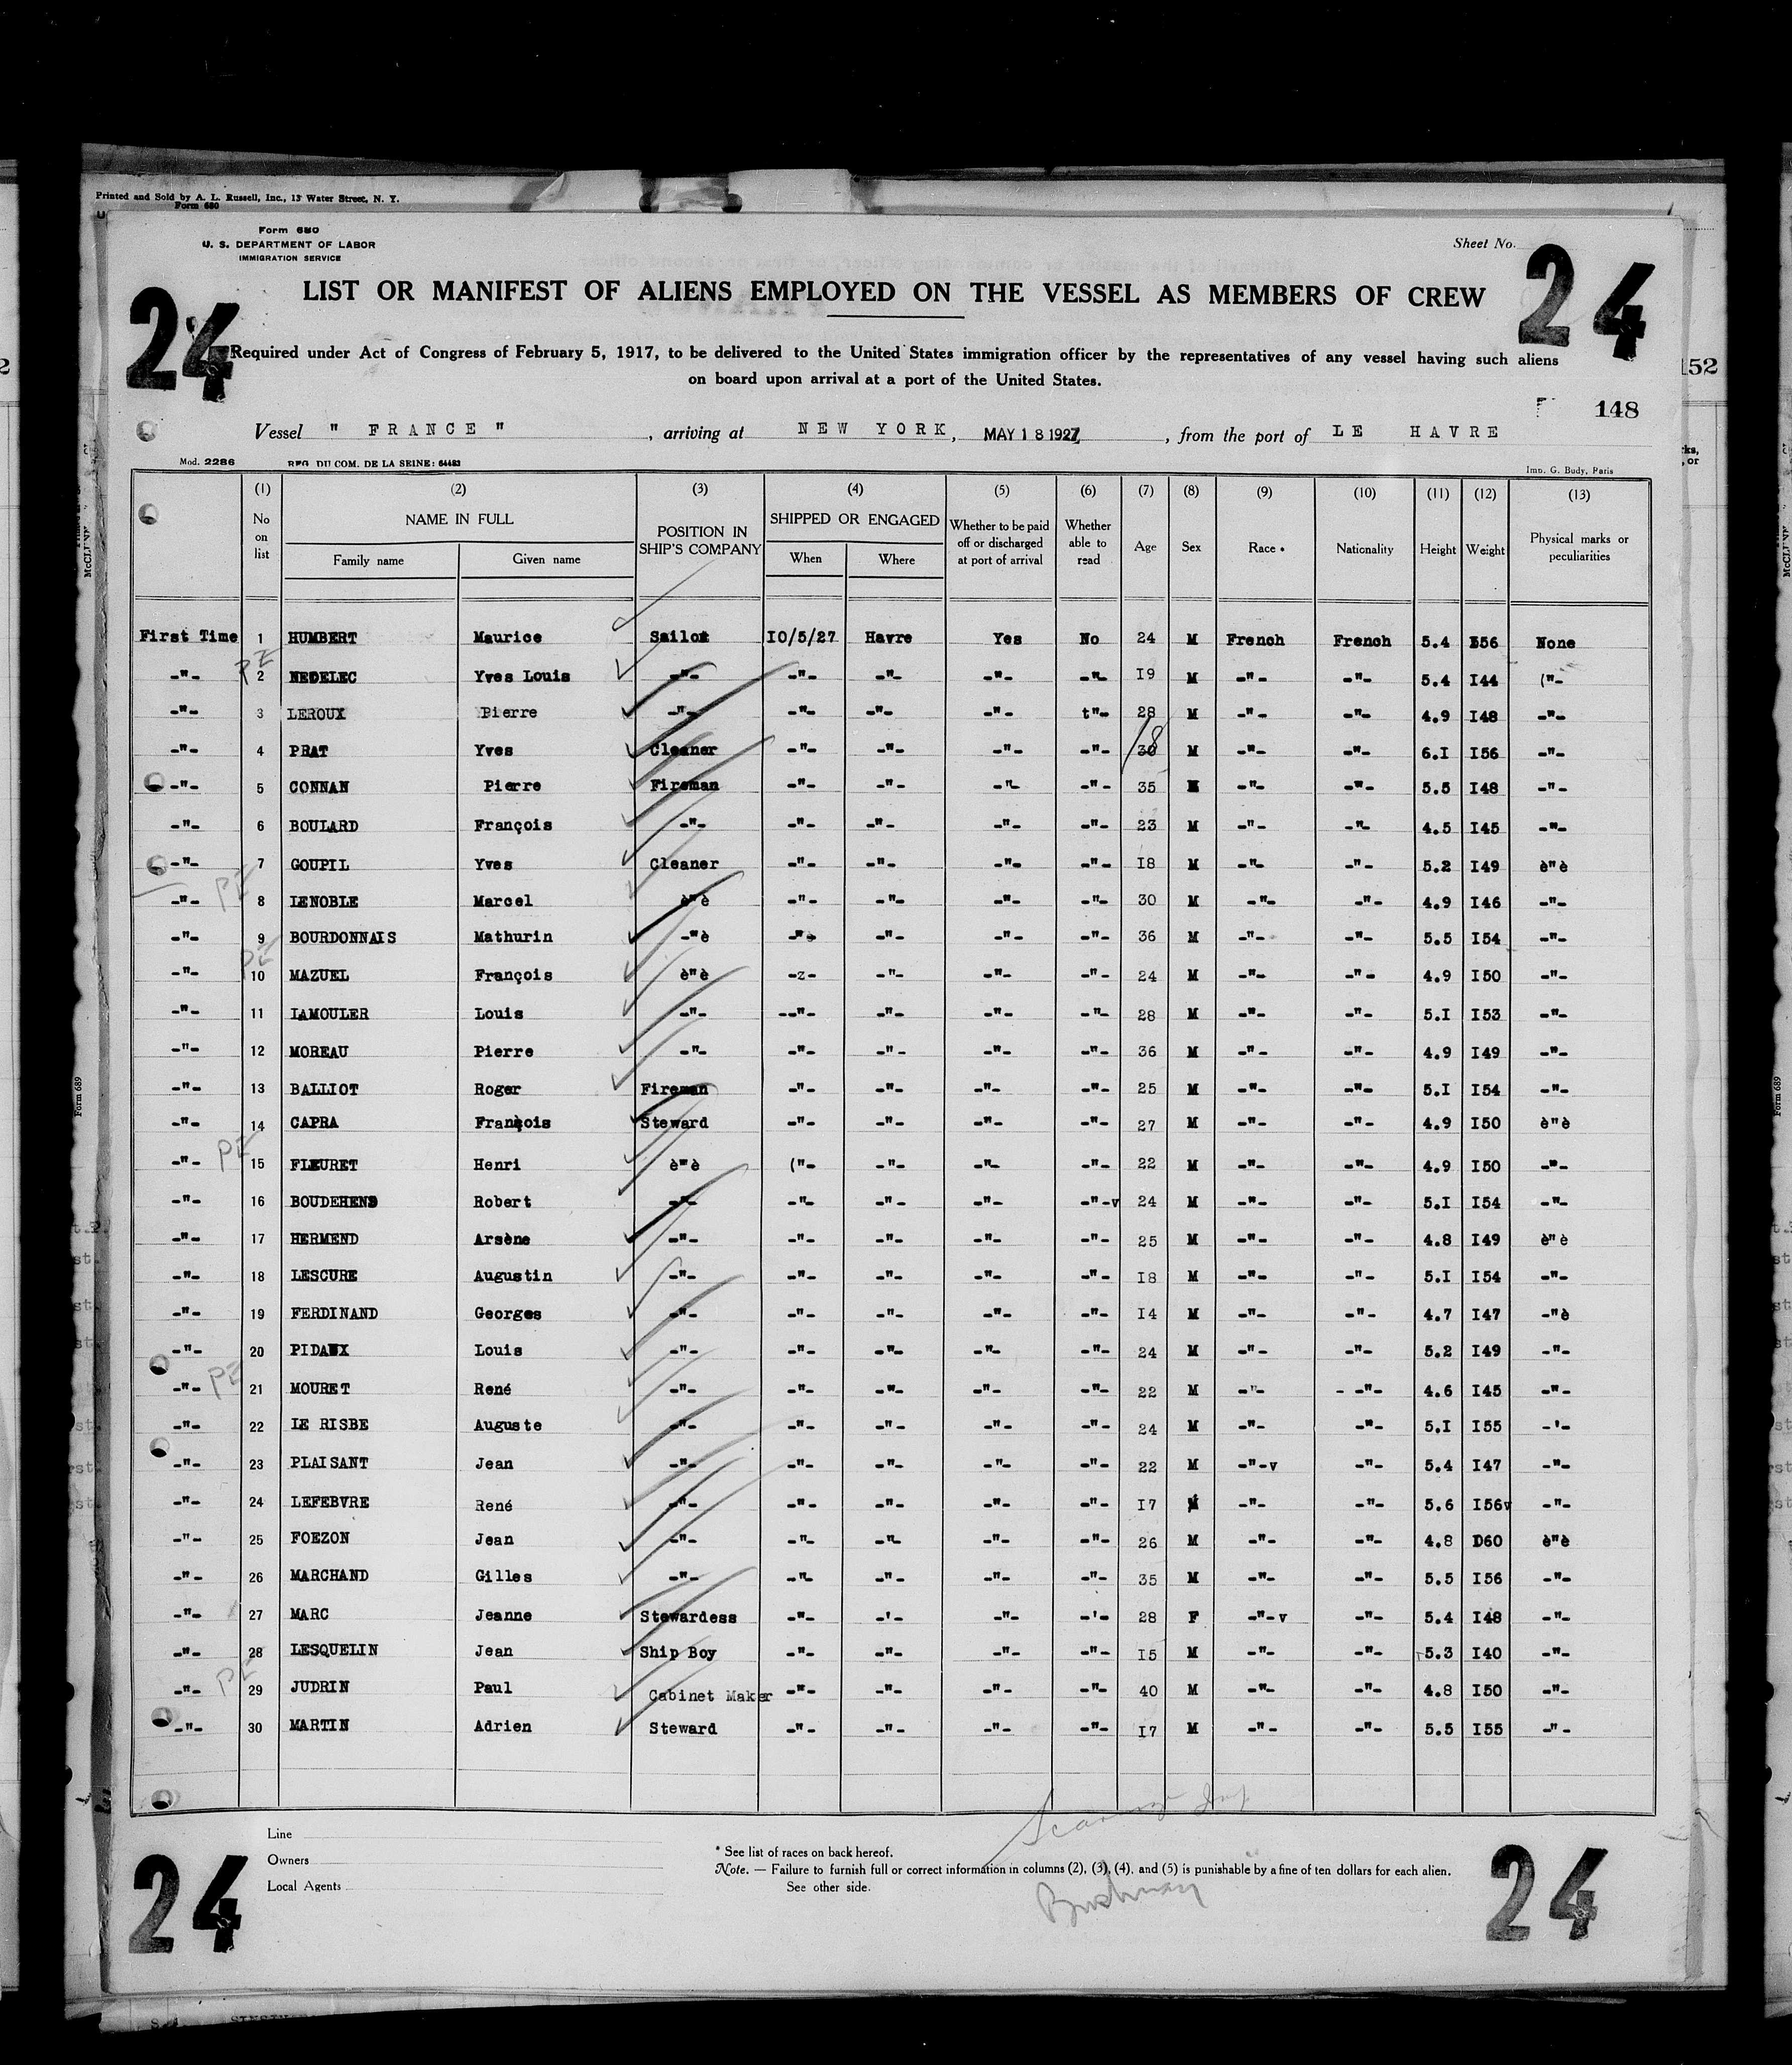 Printed and Sold by A. L. Russell, Inc., 13 Water Street, N. Y.
Form 680
Form 680
U. S. DEPARTMENT OF LABOR
IMMIGRATION SERVICE
Sheet No.
24 24
LIST OR MANIFEST OF ALIENS EMPLOYED ON THE VESSEL AS MEMBERS OF CREW
Required under Act of Congress of February 5, 1917, to be delivered to the United States immigration officer by the representatives of any vessel having such aliens
on board upon arrival at a port of the United States.
152
148
Vessel " FRANCE ", arriving at NEW YORK, MAY 18 1927, from the port of LE HAVRE
Mod. 2286 REG. DU COM. DE LA SEINE: 64483 Imp. G. Budy, Paris
(1) (2) (3) (4) (5) (6) (7) (8) (9) (10) (11) (12) (13)
No on list NAME IN FULL POSITION IN SHIP'S COMPANY SHIPPED OR ENGAGED Whether to be paid off or discharged at port of arrival Whether able to read Age Sex Race * Nationality Height Weight Physical marks or peculiarities
Family name Given name When Where
First Time 1 HUMBERT Maurice Sailor 10/5/27 Havre Yes No 24 M French French 5.4 I56 None
-"- PE 2 NEDELEC Yves Louis -"- -"- -"- -"- -"- 19 M -"- -"- 5.4 I44 ("-
-"- 3 LEROUX Pierre -"- -"- -"- -"- t"- 28 M -"- -"- 4.9 I48 -"-
-"- 4 PRAT Yves Cleaner -"- -"- -"- -"- 30 18 M -"- -"- 6.I I56 -"-
-"- 5 CONNAN Pierre Fireman -"- -"- -"- -"- 35 M -"- -"- 5.5 I48 -"-
-"- 6 BOULARD François -"- -"- -"- -"- -"- 23 M -"- -"- 4.5 I45 -"-
-"- 7 GOUPIL Yves Cleaner -"- -"- -"- -"- I8 M -"- -"- 5.2 I49 è"è
-"- PE 8 LENOBLE Marcel è"è -"- -"- -"- -"- 30 M -"- -"- 4.9 I46 -"-
-"- 9 BOURDONNAIS Mathurin -"è -"- -"- -"- -"- 36 M -"- -"- 5.5 I54 -"-
-"- PE 10 MAZUEL François è"è -z- -"- -"- -"- 24 M -"- -"- 4.9 I50 -"-
-"- 11 LAMOULER Louis -"- --"- -"- -"- -"- 28 M -"- -"- 5.I I53 -"-
-"- 12 MOREAU Pierre -"- -"- -"- -"- -"- 36 M -"- -"- 4.9 I49 -"-
-"- 13 BALLIOT Roger Fireman -"- -"- -"- -"- 25 M -"- -"- 5.I I54 -"-
-"- 14 CAPRA François Steward -"- -"- -"- -"- 27 M -"- -"- 4.9 I50 è"è
-"- PE 15 FLEURET Henri è"è ("- -"- -"- -"- 22 M -"- -"- 4.9 I50 -"-
-"- 16 BOUDEHEND Robert -"- -"- -"- -"- -"-v 24 M -"- -"- 5.I I54 -"-
-"- 17 HERMEND Arsène -"- -"- -"- -"- -"- 25 M -"- -"- 4.8 I49 è"è
-"- 18 LESCURE Augustin -"- -"- -"- -"- -"- I8 M -"- -"- 5.I I54 -"-
-"- 19 FERDINAND Georges -"- -"- -"- -"- -"- I4 M -"- -"- 4.7 I47 -"è
-"- 20 PIDAUX Louis -"- -"- -"- -"- -"- 24 M -"- -"- 5.2 I49 -"-
-"- PE 21 MOURET René -"- -"- -"- -"- -"- 22 M -"- - -"- 4.6 I45 -"-
-"- 22 LE RISBE Auguste -"- -"- -"- -"- -"- 24 M -"- -"- 5.I I55 -'-
-"- 23 PLAISANT Jean -"- -"- -"- -"- -"- 22 M -"-v -"- 5.4 I47 -"-
-"- 24 LEFEBVRE René -"- -"- -"- -"- -"- I7 M -"- -"- 5.6 I56v -"-
-"- 25 FOEZON Jean -"- -"- -"- -"- -"- 26 M -"- -"- 4.8 D60 è"è
-"- 26 MARCHAND Gilles -"- -"- -"- -"- -"- 35 M -"- -"- 5.5 I56 -"-
-"- 27 MARC Jeanne Stewardess -"- -'- -"- -'- 28 F -"-v -"- 5.4 I48 -"-
-"- 28 LESQUELIN Jean Ship Boy -"- -"- -"- -"- I5 M -"- -"- 5.3 I40 -"-
-"- PE 29 JUDRIN Paul Cabinet Maker -"- -"- -"- -"- 40 M -"- -"- 4.8 I50 -"-
-"- 30 MARTIN Adrien Steward -"- -"- -"- -"- I7 M -"- -"- 5.5 I55 -"-
Line
Owners
Local Agents
* See list of races on back hereof.
Note. — Failure to furnish full or correct information in columns (2), (3), (4), and (5) is punishable by a fine of ten dollars for each alien.
See other side.
24 24
Form 689
Form 689